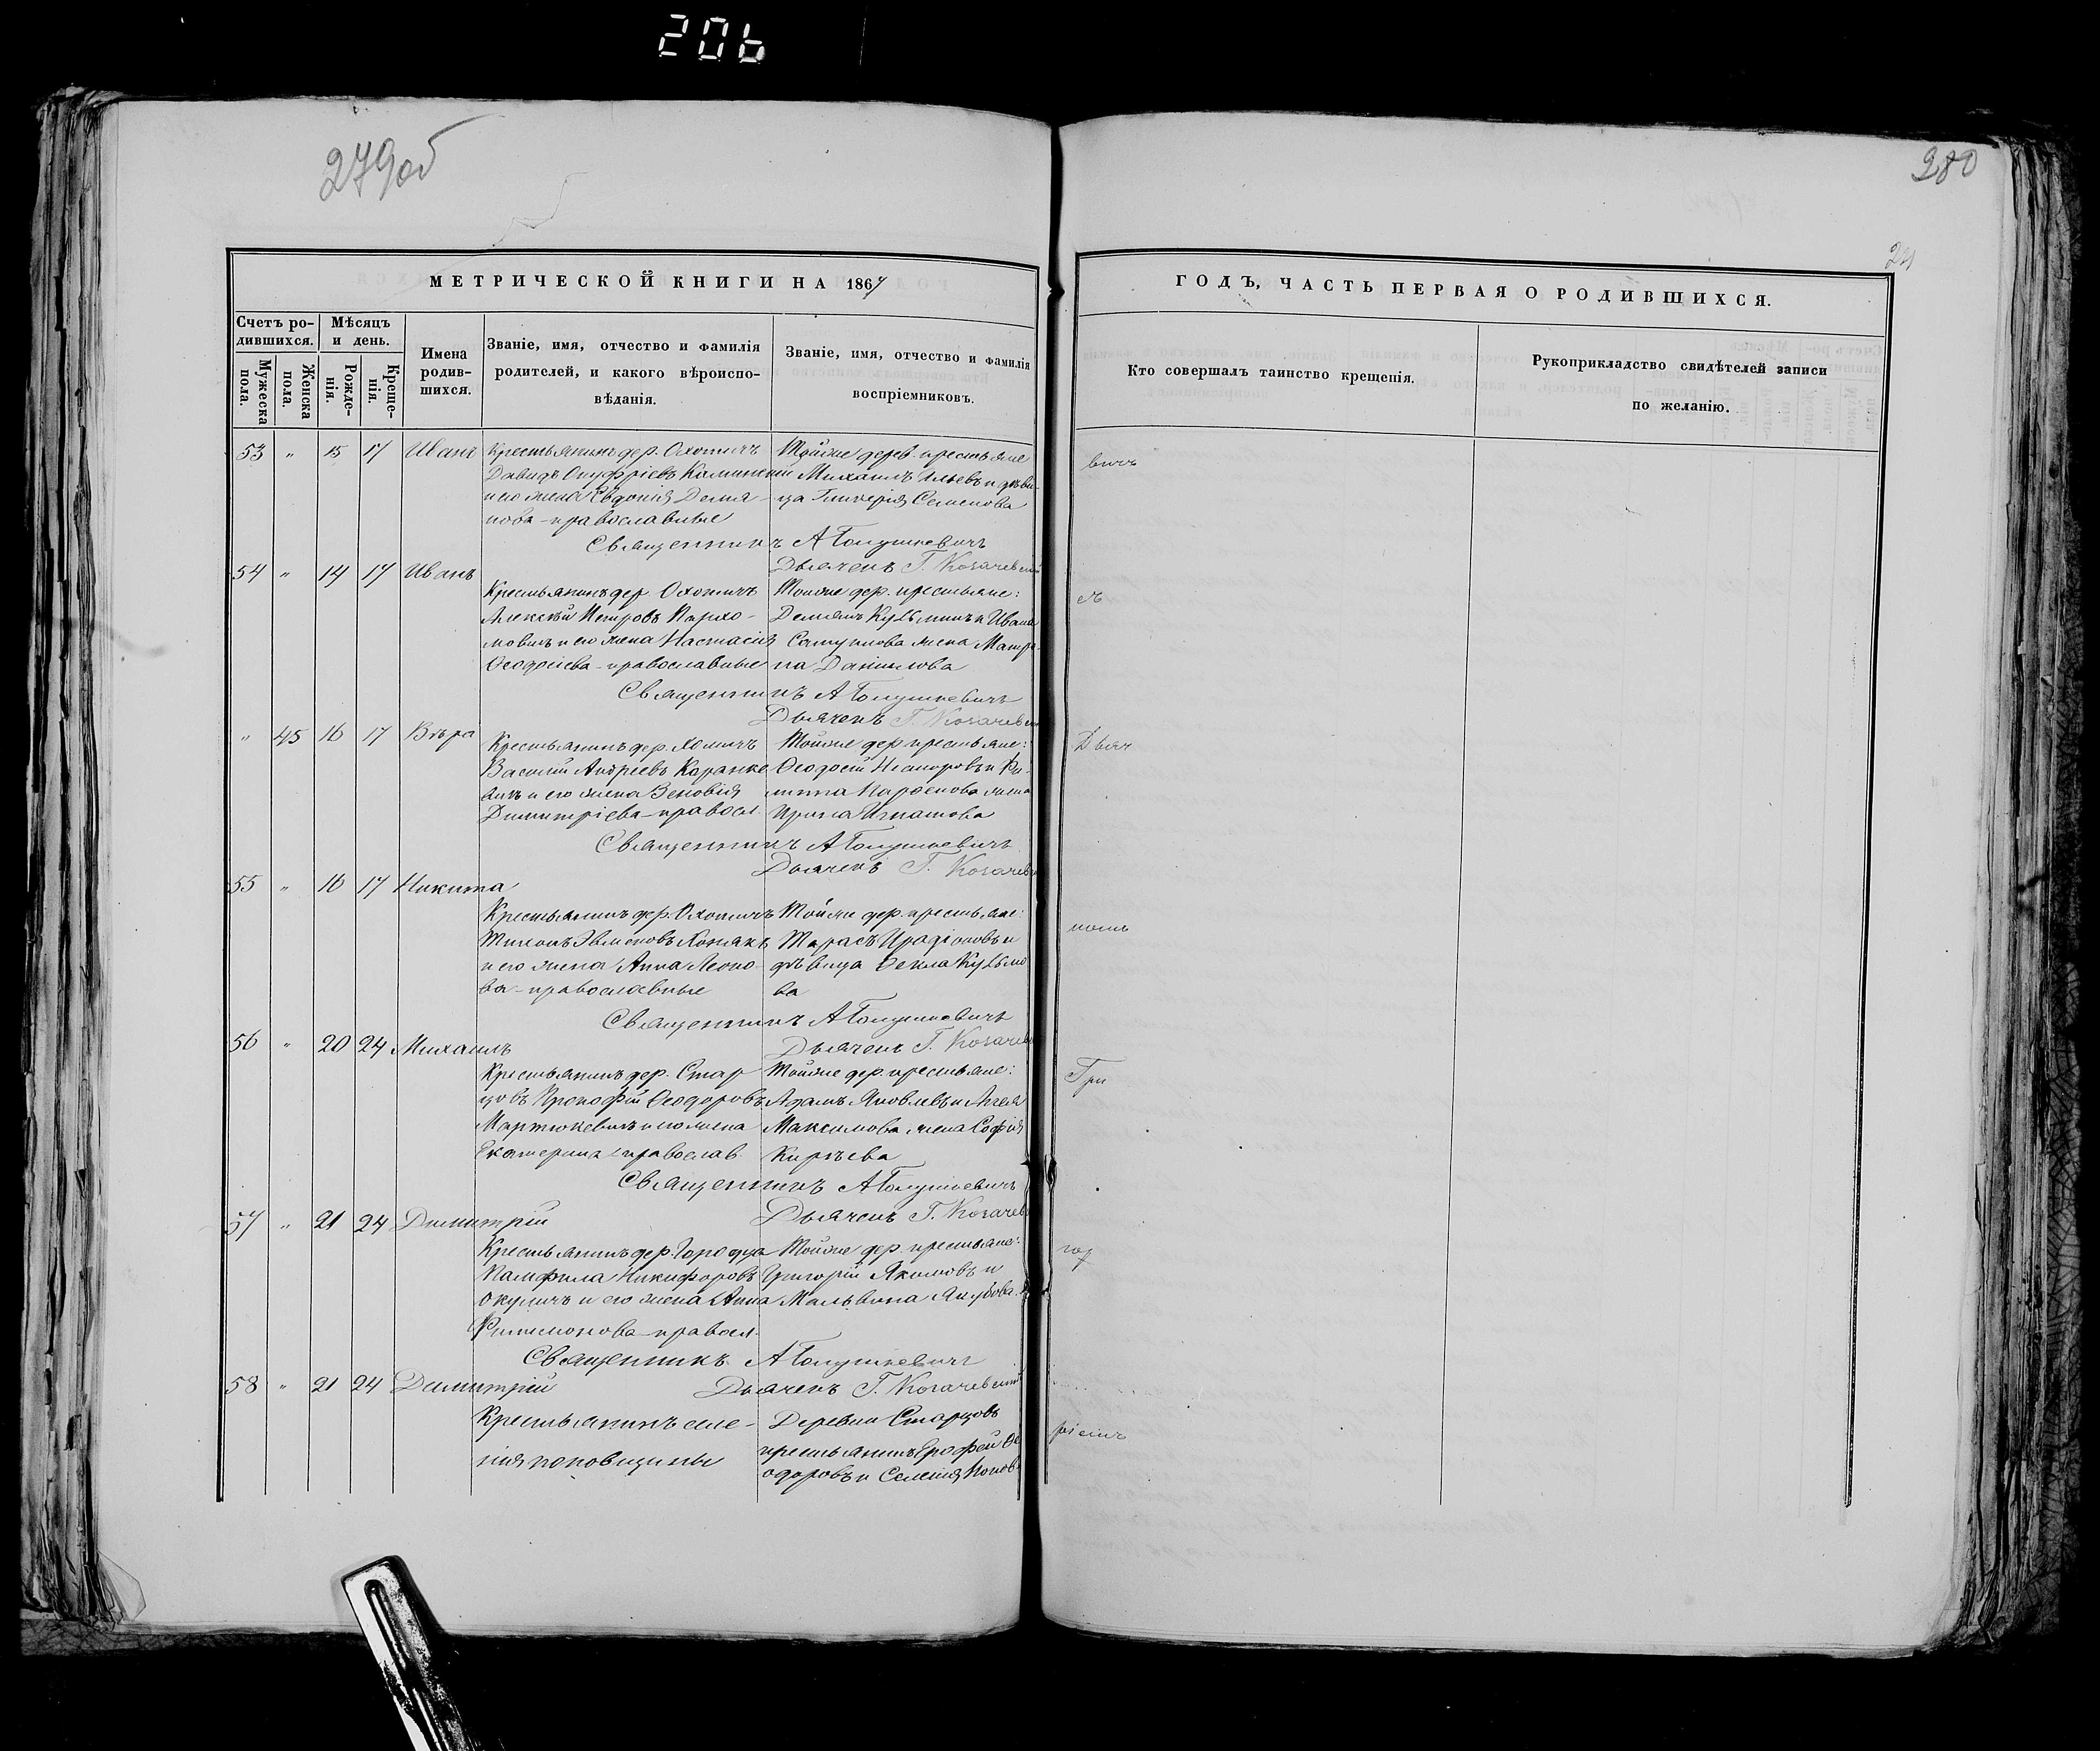 206
279об
280
24
МЕТРИЧЕСКОЙ КНИГИ НА 1867
ГОДЪ, ЧАСТЬ ПЕРВАЯ О РОДИВШИХСЯ.
Счетъ ро-
дившихся.
Мѣсяцъ
и день.
Мужеска
пола.
Женска
пола.
Рожде-
нія.
Креще-
нія.
Имена
родив-
шихся.
Званіе, имя, отчество и фамилія
родителей, и какого вѣроиспо-
вѣданія.
Званіе, имя, отчество и фамилія
воспріемниковъ.
Кто совершалъ таинство крещенія.
Рукоприкладство свидѣтелей записи
по желанію.
53 " 15 17 Иванъ
Крестьянинъ дер. Охотичъ
Давидъ Онуфріевъ
и его жена Евдокія Демя-
нова - православные
Тойже дерев. крестьяне
Михаилъ Ильевъ и дѣви-
ца Гликерія Семенова
Священникъ А
Дьячекъ Г. Козачевскій
54 " 14 17 Иванъ
Крестьянинъ дер. Охотичъ
Алексѣй Петровъ Пархо-
мовичъ и его жена Настасія
Ѳеодосіева - православные
Тойже дер. крестьяне:
Демьянъ Кузьминъ и Ивана
Самуилова жена Матро-
на Данилова
Священникъ А
Дьячекъ Г. Козачевскій
" 45 16 17 Вѣра
Крестьянинъ дер. Хотичъ
Василій Андреевъ
и его жена Зеновія
Димитріева - правосл.
Тойже дер. крестьяне:
Ѳеодосій и Фи-
липпа Парѳенова жена
Ирина Игнатова
Священникъ А
Дьячекъ Г. Козачев
55 " 16 17 Никита
Крестьянинъ дер. Охотичъ
Тихонъ
и его жена Анна Леоно-
ва - православные
Тойже дер. крестьяне:
Тарасъ Иродіоновъ и
дѣвица Ѳекла Кузьмо
ва
Священникъ А
Дьячекъ Г. Козачев
56 " 20 24 Михаилъ
Крестьянинъ дер. Стар
цовъ Прокофій Ѳеодоровъ
Мартюкевичъ и его жена
Екатерина православ.
Тойже дер. крестьяне:
Адамъ Яковлевъ и
Максимова жена Софія
Кирѣева
Священникъ А
Дьячекъ Г. Козачев
57 " 21 24 Димитрій
Крестьянинъ дер. Городца
Памфила Никифоровъ
Окуличъ и его жена Анна
Филимонова - правосл.
Тойже дер. крестьяне:
Григорій Якимовъ и
Мальвина Якубова
Священникъ А
Дьячекъ Г. Козачевскій
58 " 21 24 Димитрій
Крестьянинъ селе-
нія поповщины
Деревни Старцовъ
крестьянинъ Ерофей Ѳе
одоровъ и
вичъ
Дьяч
Гри